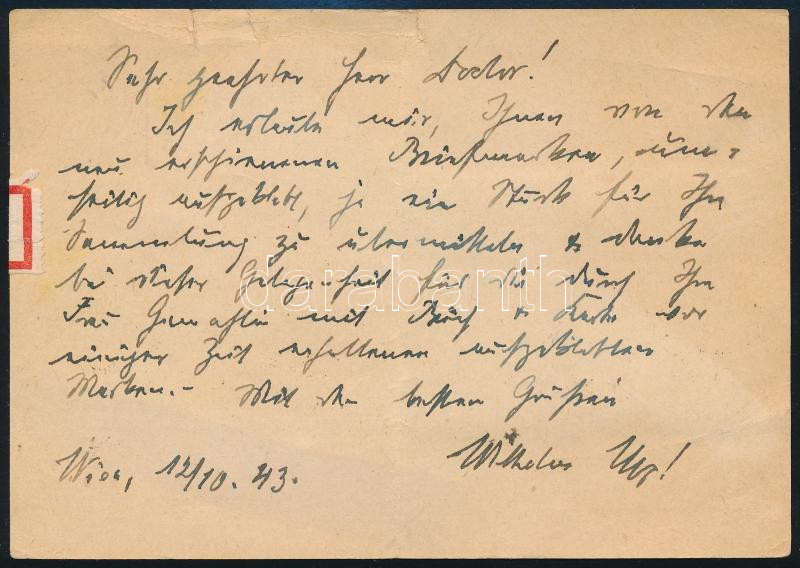 Sehr geehrter Herr Doctor!
Ich erlaube mir, Ihnen von den
neu erschienenen Briefmarken, um-
seitig aufgeklebt, je ein Stück für Ihre
Sammlung zu übermitteln & danke
bei dieser Gelegenheit für die durch Ihre
Frau Gemahlin mit Brief & Karte vor
einiger Zeit erhaltenen aufgeklebten
Marken.- Mit den besten Grüßen
Wien, 12/10. 43. Wilhelm
darabanth